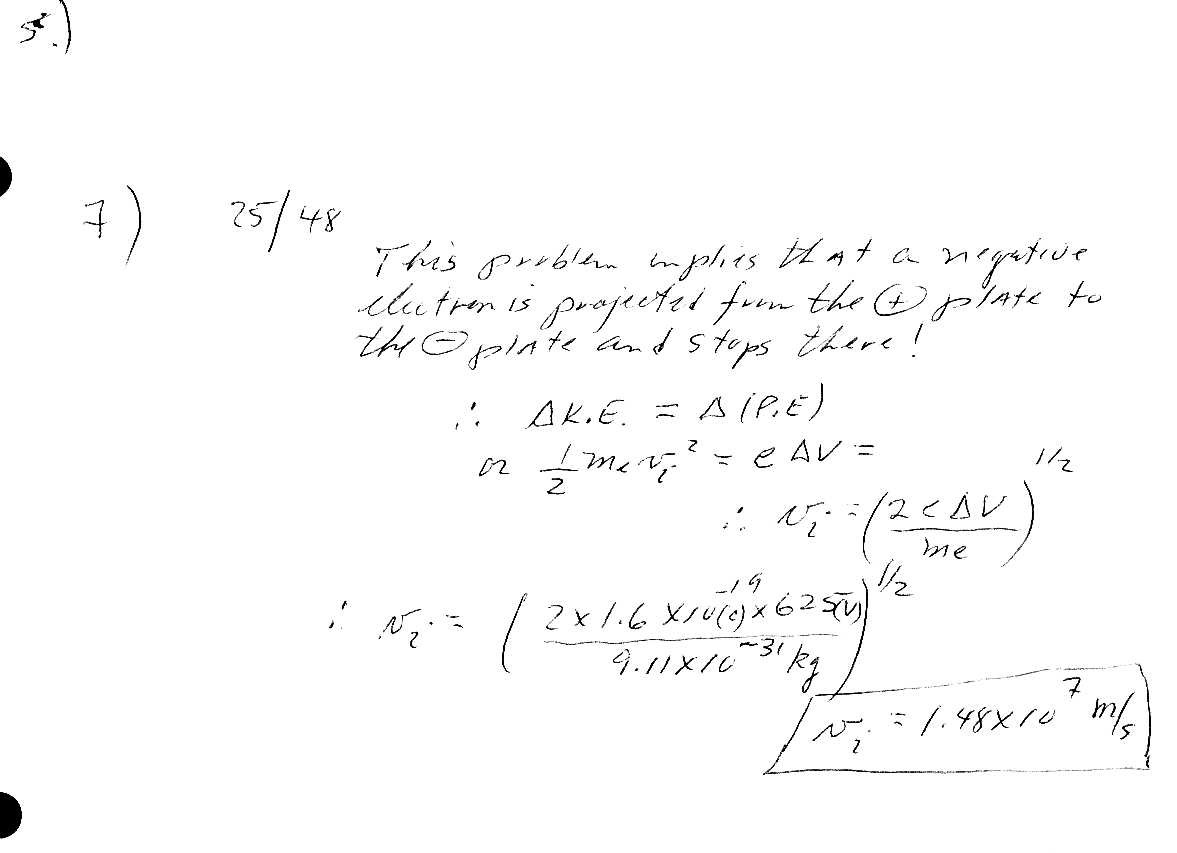 5.)
7) 25/48
This problem implies that a negative
electron is projected from the ⊕ plate to
the ⊖ plate and stops there!
∴ ΔK.E. = Δ(P.E)
or 1/2 mₑ vᵢ² = e ΔV =
∴ vᵢ = (2eΔV / me)^1/2
∴ vᵢ = (2 x 1.6 x 10^-19 (c) x 625(V) / 9.11 x 10^-31 kg)^1/2
vᵢ = 1.48 x 10^7 m/s